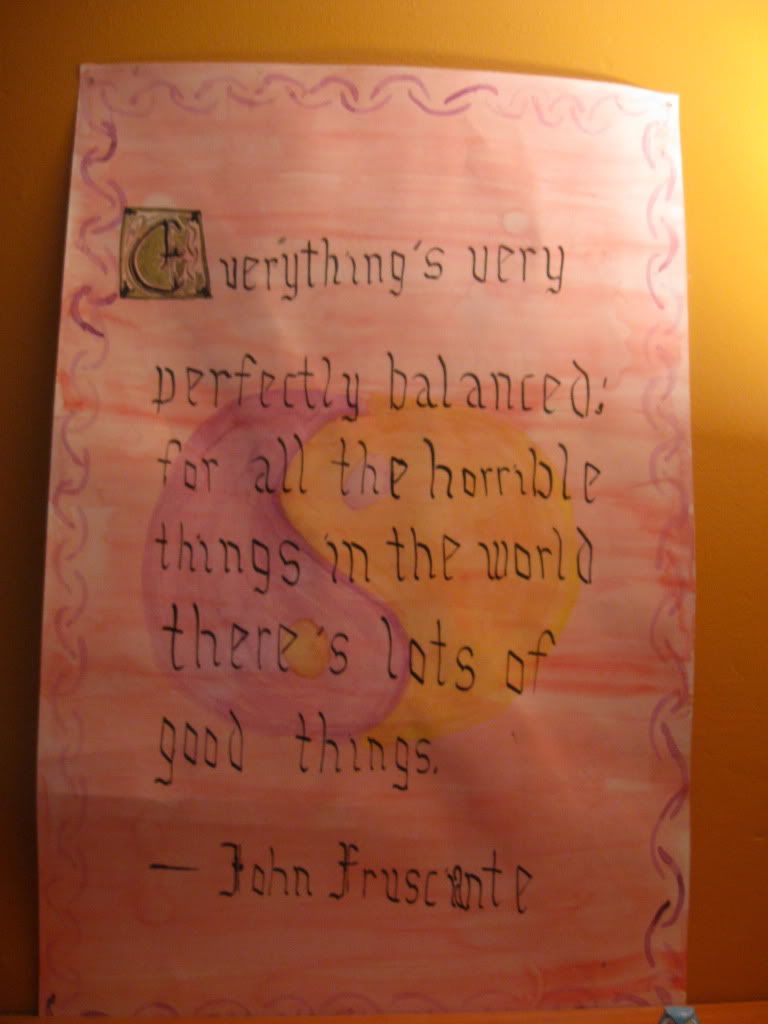 Everything's very
perfectly balanced:
for all the horrible
things in the world
there's lots of
good things.
— John Frusciante